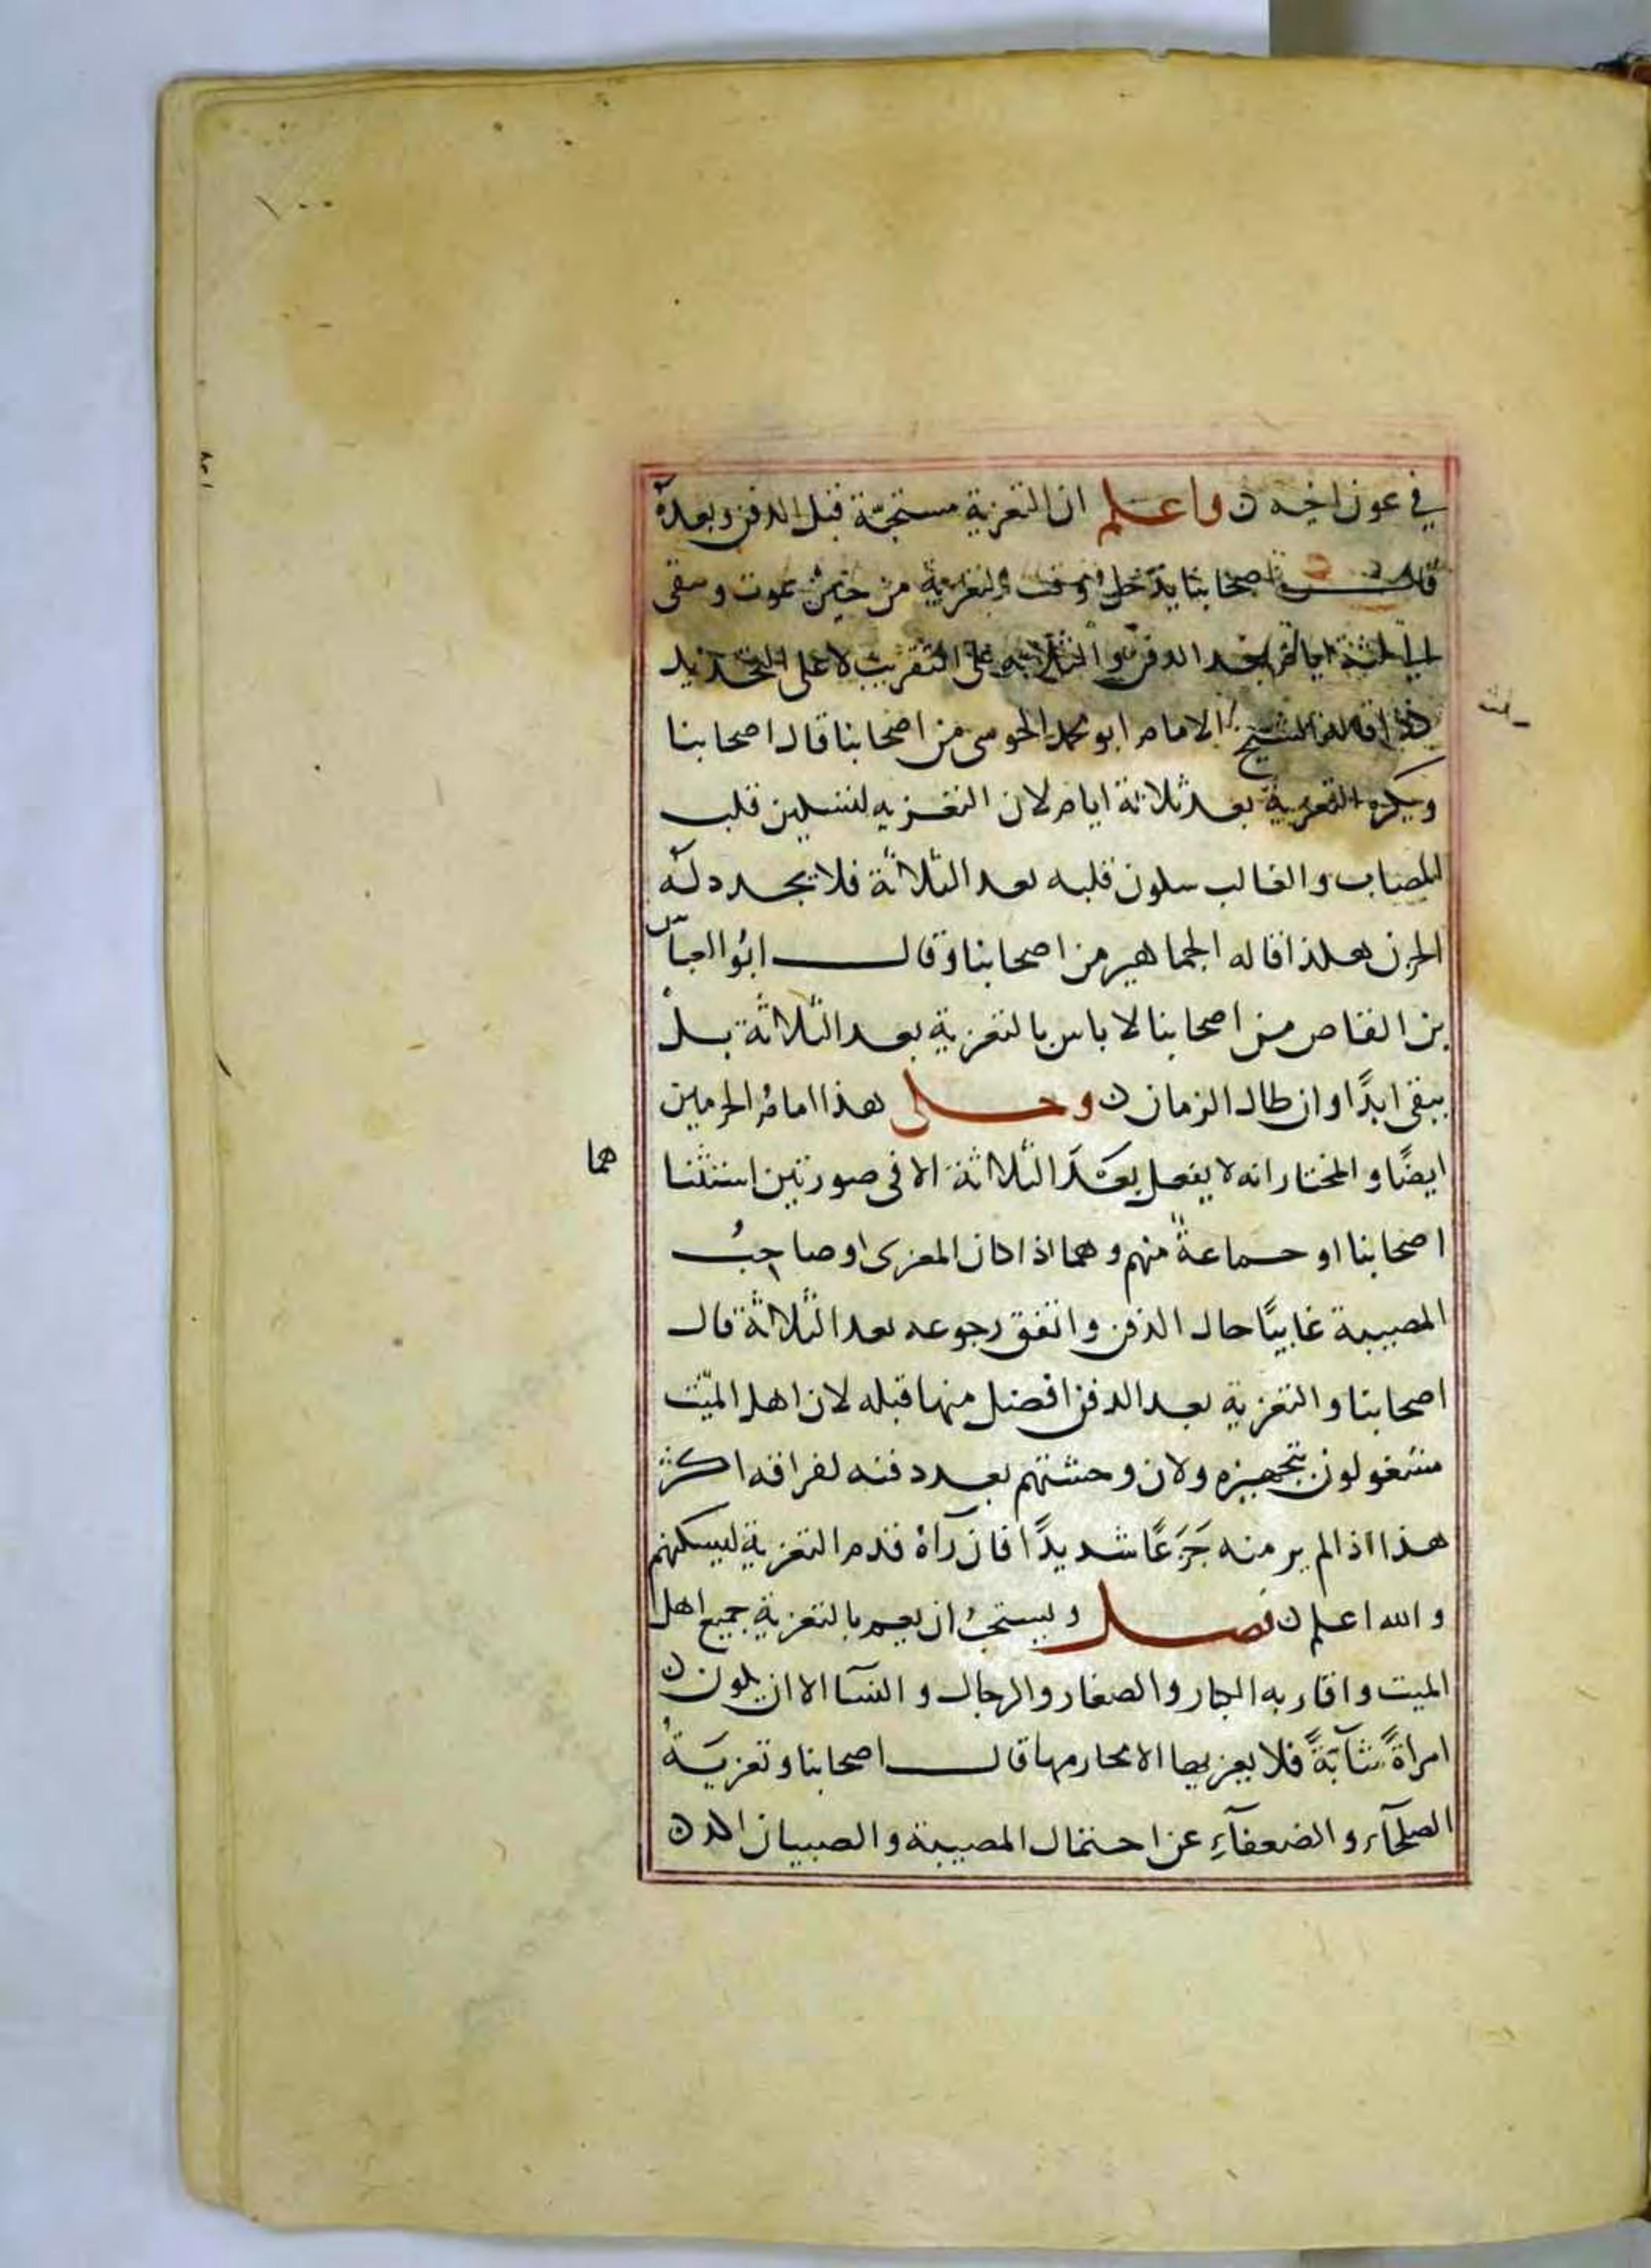 ١٠٠
في عون اخيه ن واعلم ان التعزية مستحبّة قبل الدفن وبعده
قال اصحابنا يدخل وقت التعزية من حين يموت ويبقى
الى ثلثة ايام بعد الدفن والثلاثة على التقريب لا على التحديد
كذا قاله الشيخ الامام ابو محمد الجويني من اصحابنا قال اصحابنا
ويكره التعزية بعد ثلاثة ايام لان التعزيه لتسكين قلب
المصاب والغالب سكون قلبه بعد الثلاثة فلا يجدد له
الحزن هكذا قاله الجماهير من اصحابنا وقال ابو العباس
بن القاص من اصحابنا لا باس بالتعزية بعد الثلاثة بل
يبقى ابدًا وان طال الزمان ن وحكى هذا امام الحرمين
ايضًا والمختار انه لا يفعل بعد الثلاثة الا في صورتين استثنا
هما
اصحابنا او جماعة منهم وهما اذا كان المعزى او صاحبُ
المصيبة غايبًا حال الدفن واتفق رجوعه بعد الثلاثة قال
اصحابنا والتعزية بعد الدفن افضل منها قبله لان اهل الميّت
مشغولون بتجهيزه ولان وحشتهم بعد دفنه لفراقه اكثر
هذا اذا لم ير منه جَزَعًا شديدًا فان رآه قدم التعزية ليسكنهم
والله اعلم ن فصل ويستحبُ ان يعم بالتعزية جميع اهل
الميت واقاربه الكبار والصغار والرجال والنسآ الا ان يكون ن
امراةً شآبّةً فلا يعزيها الا محارمها قال اصحابنا وتعزيَةُ
الصلحآء والضعفآءِ عن احتمال المصيبة والصبيان اكد ن